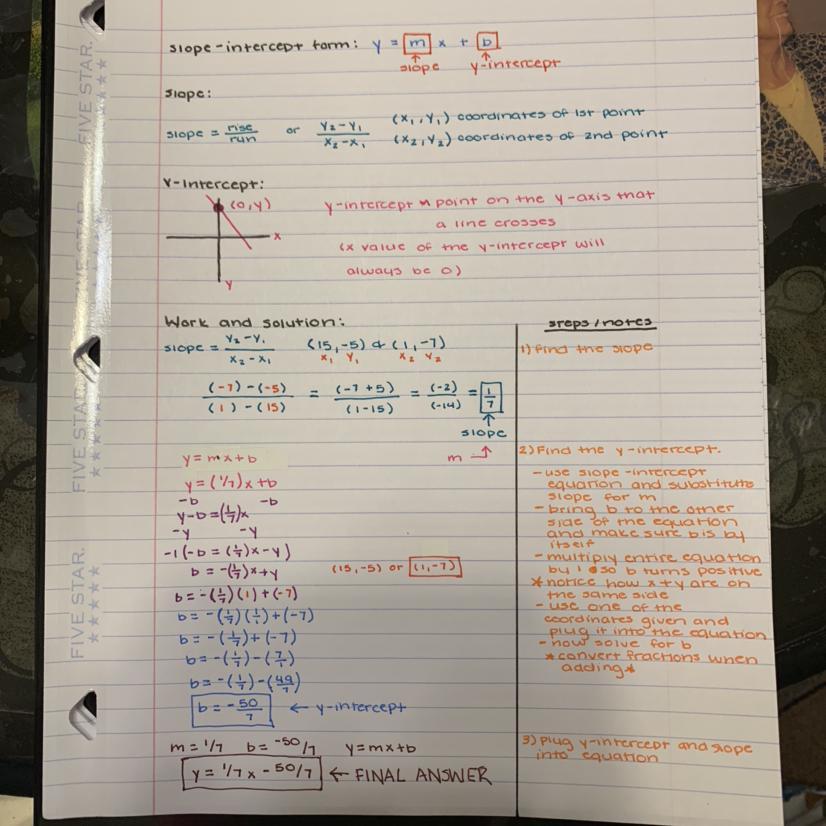 slope-intercept form: y = m x + b
slope y-intercept
slope:
slope = rise/run or Y₂-Y₁/X₂-X₁ (X₁,Y₁) coordinates of 1st point
(X₂,Y₂) coordinates of 2nd point
Y-Intercept:
(0,Y)
x
Y
y-intercept → point on the y-axis that
a line crosses
(x value of the y-intercept will
always be 0)
Work and solution:
slope = Y₂-Y₁/X₂-X₁ (15,-5) & (1,-7)
X₁ Y₁ X₂ Y₂
(-7)-(-5)/(1)-(15) = (-7+5)/(1-15) = (-2)/(-14) = 1/7
slope
m
y=mx+b
y=(1/7)x+b
-b -b
y-b=(1/7)x
-y -y
-1(-b=(1/7)x-y)
b=-(1/7)x+y (15,-5) or (1,-7)
b=-(1/7)(1)+(-7)
b=-(1/7)(1/1)+(-7)
b=-(1/7)+(-7)
b=-(1/7)-(7/1)
b=-(1/7)-(49/7)
b=-50/7 ← y-intercept
m=1/7 b=-50/7 y=mx+b
y=1/7x-50/7 ← FINAL ANSWER
steps/notes
1) find the slope
2) Find the y-intercept.
-use slope-intercept
equation and substitute
slope for m
-bring b to the other
side of the equation
and make sure b is by
itself
-multiply entire equation
by 1 so b turns positive
*notice how x+y are on
the same side
-use one of the
coordinates given and
plug it into the equation
-now solve for b
*convert fractions when
adding*
3) plug y-intercept and slope
into equation
FIVE STAR.
FIVE STAR.
FIVE STAR.